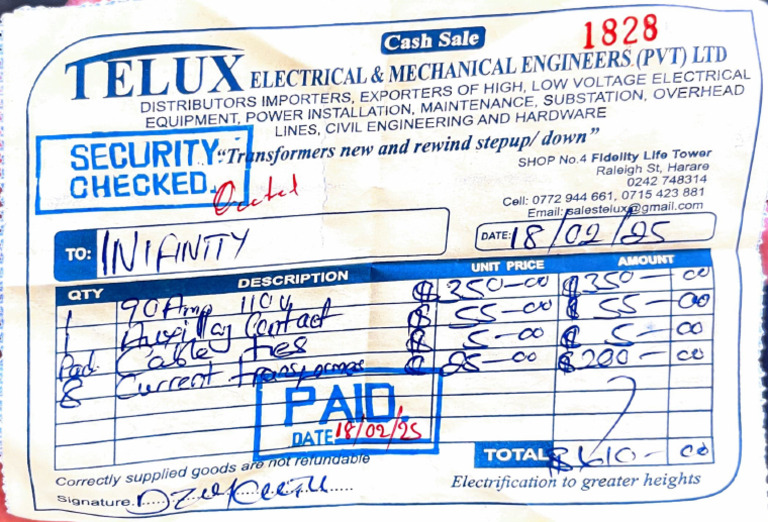 Cash Sale
1828
TELUX ELECTRICAL & MECHANICAL ENGINEERS (PVT) LTD
DISTRIBUTORS IMPORTERS, EXPORTERS OF HIGH, LOW VOLTAGE ELECTRICAL
EQUIPMENT, POWER INSTALLATION, MAINTENANCE, SUBSTATION, OVERHEAD
LINES, CIVIL ENGINEERING AND HARDWARE
"Transformers new and rewind stepup/ down"
SECURITY
CHECKED.
SHOP No.4 Fidelity Life Tower
Raleigh St, Harare
0242 748314
Cell: 0772 944 661, 0715 423 881
Email: salestelux@gmail.com
TO: INIFINITY
DATE: 18/02/25
QTY DESCRIPTION UNIT PRICE AMOUNT
1 90Amp 110V $350-00 $350-00
1 Auxillay Contact $55-00 $55-00
Pad Cable ties $5-00 $5-00
8 Current transformer $25-00 $200-00
PAID.
DATE 18/02/25
TOTAL $610-00
Correctly supplied goods are not refundable
Signature
Electrification to greater heights